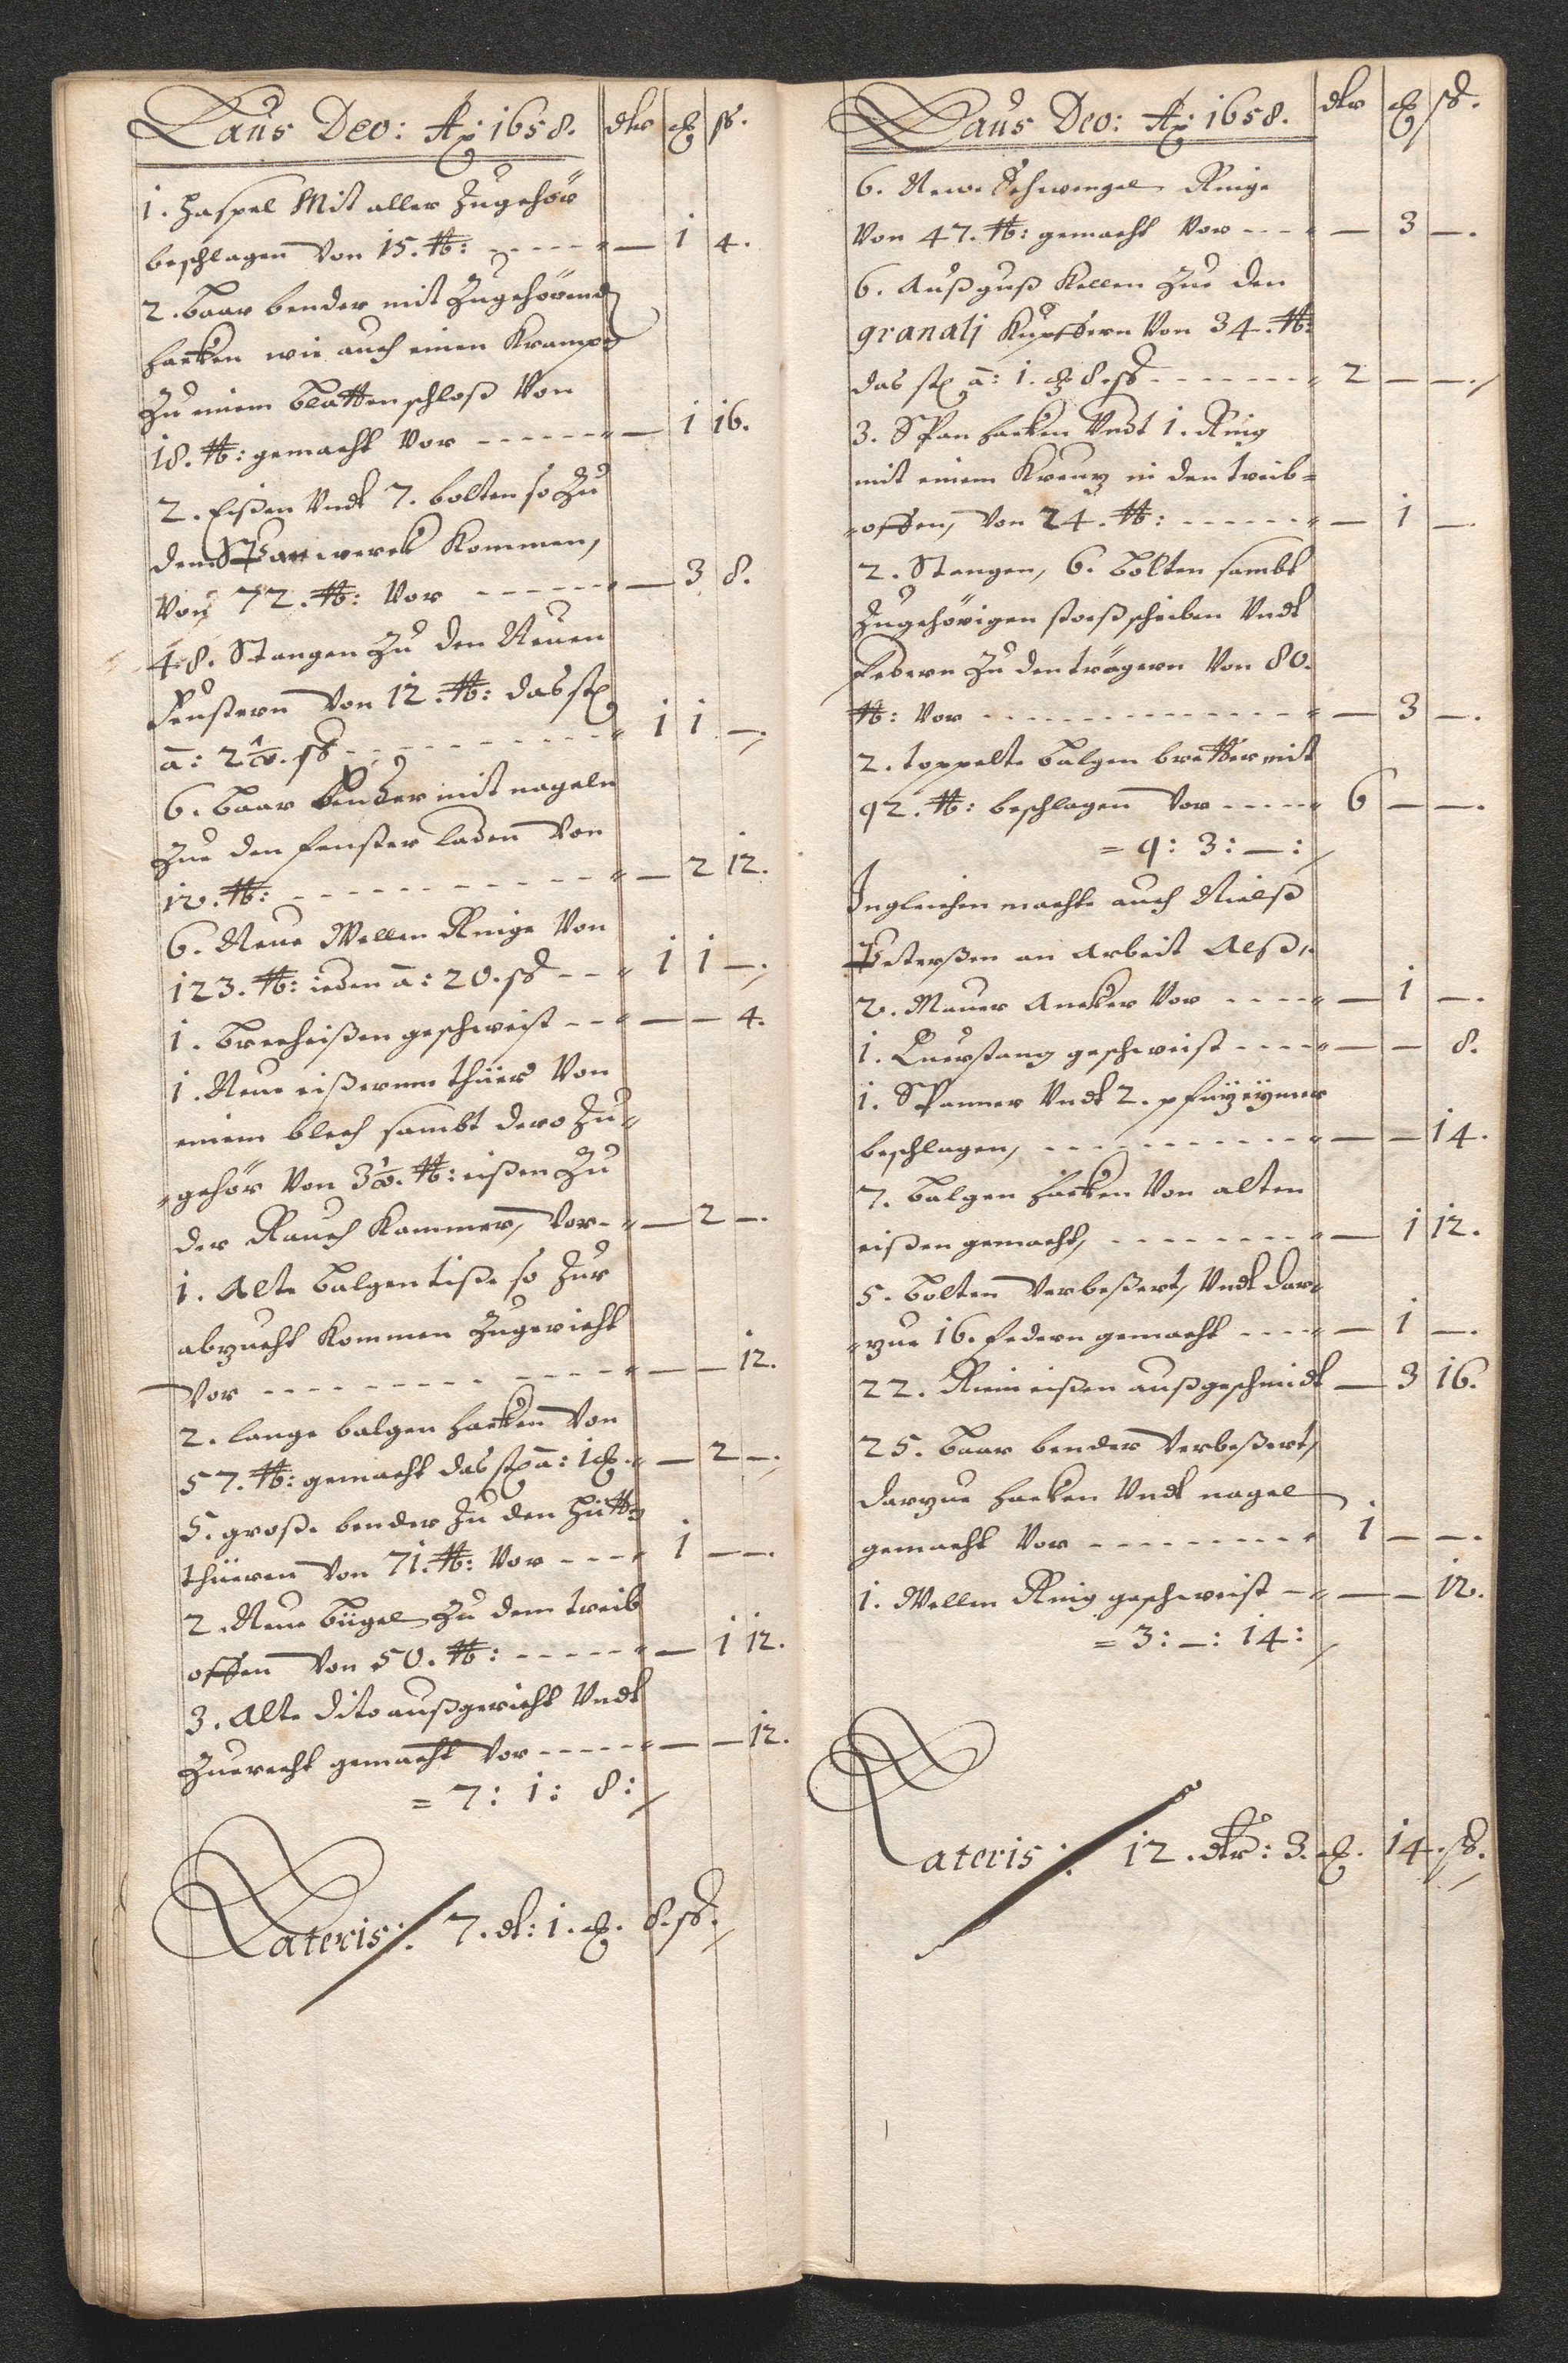 Laus Deo: Aō: 1658. dlr ß.
1. Haspel Mit aller Zugehör
beschlagen Von 15. ℔: — 1 4.
2. Baar bender mit Zugehörend
hacken wie auch einen Kramp
Zu einem blatten schloß Von
18. ℔: gemacht Vor — 1 16.
2. Eißen Undt 7. bolten so Zu
dem Spanwerck Kommen,
Von 72. ℔: Vor — 3 8.
48. Stangen Zu den Neuen
Fenstern Von 12. ℔: das st
ā: 2½. ß 1 1 —.
6. Baar bender mit nageln
Zue den fenster laden Von
12. ℔: — 2 12.
6. Neue Wellen Ringe Von
123. ℔: ieden ā: 20. ß 1 1 —.
1. Brecheißen geschweist — — 4.
1. Neue eißerne thüer Von
einem blech sambt dero Zu=
=gehör Von 3½. ℔: eißen Zu
der Rauch Kammer, Vor — 2 —.
1. Alte Balgen tiße so Zur
abzucht Kommen Zugericht
Vor — — 12.
2. lange balgen hacken Von
57. ℔: gemacht das st ā: 1 — 2 —.
5. große bender Zu den Hütten
thüeren Von 71. ℔: Vor 1 — —.
2. Neue bügel Zu dem treib
offen Von 50. ℔: — 1 12.
3. Alte dito außgericht Undt
Zuerecht gemacht Vor — — 12.
= 7: 1: 8:
Lateris: 7. dl: 1. 8. ß.
Laus Deo: Aō: 1658. dlr ß.
6. Newe Schwengel Ringe
Von 47. ℔: gemacht Vor — 3 —.
6. Außguß Kellen Zue den
granalj Kupffern Von 34. ℔:
das st ā: 1. 8. ß 2 — —.
3. Span hacken Undt 1. Ring
mit einem Kreuz in den treib=
=offen, Von 24. ℔: — 1 —.
2. Stangen, 6. Bolten sambt
Zugehörigen stoeßscheiben Undt
federn Zu den trägern Von 80.
℔: Vor — 3 —.
2. toppelte Balgen bretter mit
92. ℔: beschlagen Vor 6 — —.
= 9: 3: —:
Ingleichen machte auch Nielß
Peterßen an Arbeit Alß,
2. Mauer Ancker Vor — 1 —.
1. Querstang geschweist — — 8.
1. Spanner Undt 2. eymer
beschlagen, — — 14.
7. Balgen hacken Von alten
eißen gemacht, — 1 12.
5. Bolten Verbeßert, Undt dar=
=zue 16. federn gemacht — 1 —.
22. Rein eißen außgeschmidt — 3 16.
25. Baar bender Verbeßert,
darzue hacken Undt nagel
gemacht Vor 1 — —.
1. Wellen Ring geschweist — — 12.
= 3: —: 14:
Lateris: 12. dlr: 3. 14. ß.